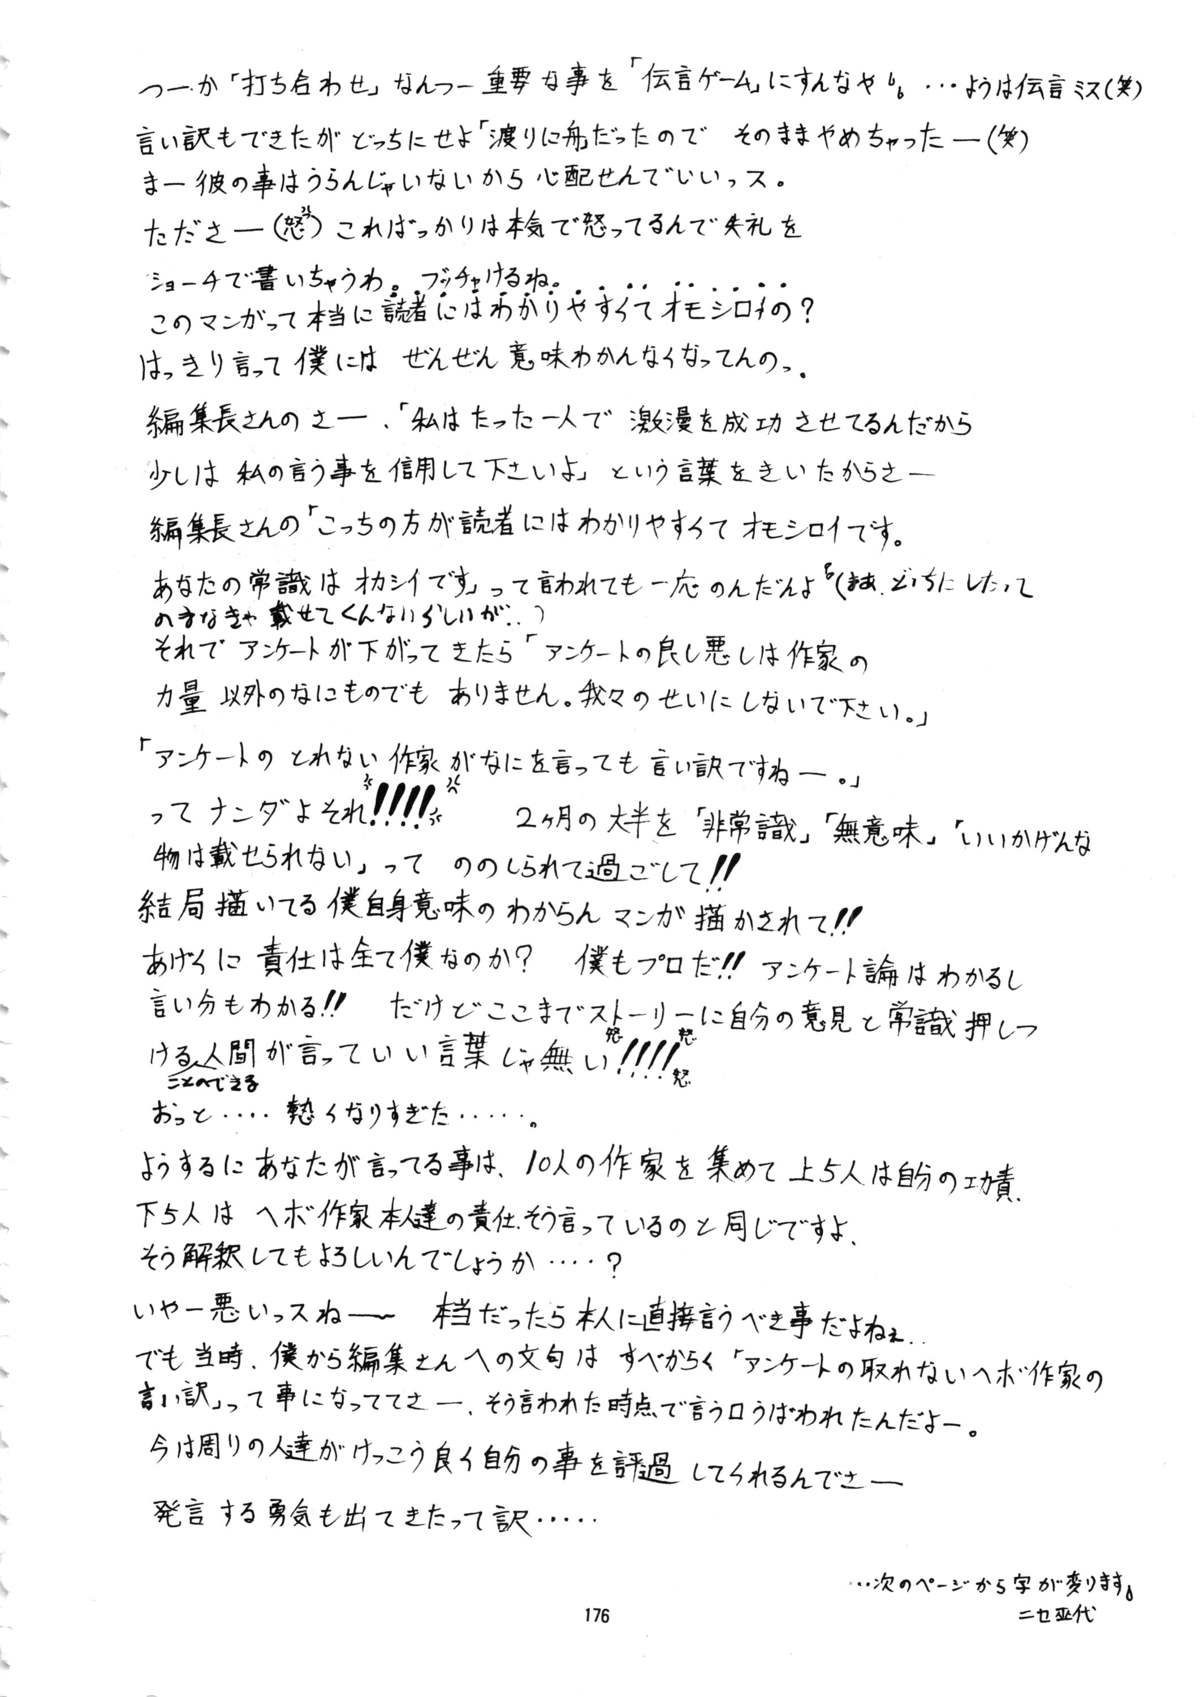 つーか「打ち合わせ」なんつー重要な事を「伝言ゲーム」にすんなや。…ようは伝言ミス(笑)
言い訳もできたがどっちにせよ「渡りに船」だったので そのままやめちゃったー(笑)
まー彼の事はうらんじゃいないから心配せんでいいっス。
たださー(怒)こればっかりは本気で怒ってるんで失礼を
ショーチで書いちゃうわ。ブッチャけるね。
このマンガって本当に読者にはわかりやすくてオモシロイの？
はっきり言って僕には ぜんぜん意味わかんなくなってんのっ.
編集長さんのさー、「私はたった一人で 激漫を成功させてるんだから
少しは私の言う事を信用して下さいよ」という言葉をきいたからさー
編集長さんの「こっちの方が読者にはわかりやすくてオモシロイです。
あなたの常識はオカシイです」って言われても一応のんだんよ(まあ、どっちにしたって
のまなきゃ載せてくんないらしいが..)
それでアンケートが下がってきたら「アンケートの良し悪しは作家の
力量以外のなにものでもありません。我々のせいにしないで下さい。」
「アンケートのとれない作家がなにを言っても言い訳ですねー。」
ってナンダよそれ!!!! 2ヶ月の大半を「非常識」「無意味」「いいかげんな
物は載せられない」って ののしられて過ごして!!
結局描いてる僕自身意味のわからんマンガ描かされて!!
あげくに責任は全て僕なのか？ 僕もプロだ!! アンケート論はわかるし
言い分もわかる!! だけどここまでストーリーに自分の意見と常識押しつ
ける人間が言っていい言葉じゃ無い!!!!
ことのできる
怒 怒 怒
おっと‥‥熱くなりすぎた‥‥‥。
ようするにあなたが言ってる事は、10人の作家を集めて上5人は自分の功績、
下5人はヘボ作家本人達の責任.そう言っているのと同じですよ、
そう解釈してもよろしいんでしょうか‥‥？
いやー悪いっスねー〜 本当だったら本人に直接言うべき事だよねぇ..
でも当時、僕から編集さんへの文句はすべからく「アンケートの取れないヘボ作家の
言い訳」って事になっててさー、そう言われた時点で言う口うばわれたんだよー。
今は周りの人達がけっこう良く自分の事を評過してくれるんでさー
発言する勇気も出てきたって訳‥‥‥
…次のページから字が変ります。
ニセ巫代
176